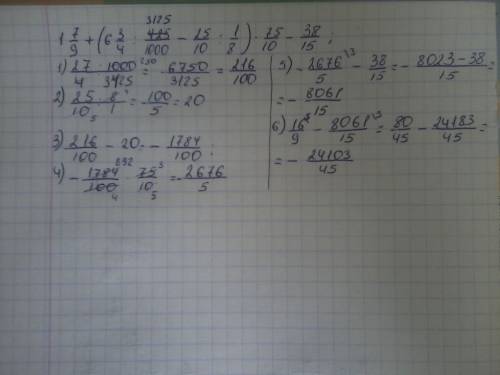 3125
1 7/9 + (6 3/4 : 425/1000 − 25/10 : 1/8) · 75/10 − 38/15 ;
1) 27 · 1000 250 / 4 · 3125 = 6750/3125 = 216/100
2) 25 · 8 / 10 5 · 1 = 100/5 = 20
3) 216/100 − 20 = − 1784/100 ;
4) − 1784 892/100 4 · 75 3/10 5 = − 2676/5
5) − 2676 \3/5 − 38/15 = − 8023 − 38/15 =
= − 8061/15
6) 16 \5/9 − 8061 \3/15 = 80/45 − 24183/45 =
= − 24103/45